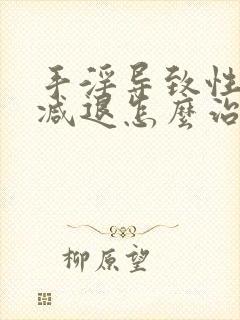 手淫导致性
减退怎麼治
柳原望